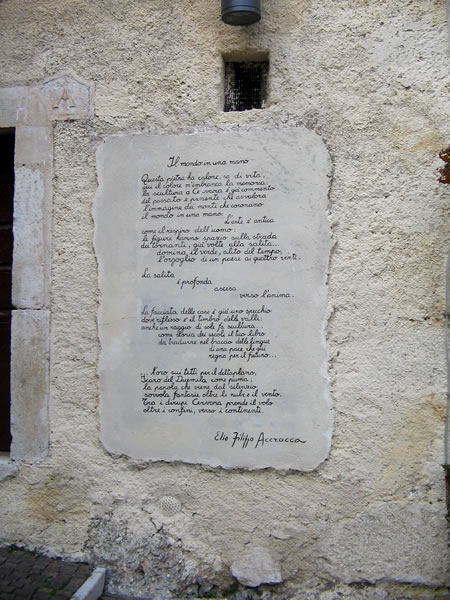 Il mondo in una mano
Questa pietra ha calore, sa di vita,
qui il colore m'imbranca la memoria,
la scultura a Cervara è già commento
del passato e presente che avvalora
l'immagine dei monti che coronano
il mondo in una mano.
L'arte è antica
come il respiro dell'uomo:
le figure hanno spazio sulla strada
dei tornanti, già volte alla salita...
domina il verde, alito del tempo,
l'orgoglio di un paese ai quattro venti.
La salita
è profonda
ascesa
verso l'anima.
La facciata delle case è già uno specchio
dove riflesso è il timbro della valle:
anche un raggio di sole fa scultura...
come storia dei secoli il tuo libro
da tradurre nel braccio delle lingue
di una pace che qui
regna per il futuro...
... loro sui tetti per il deltaplano,
Icaro del Duemila come piuma:
la parola che viene dal silenzio
sorvola fantasie oltre le nubi e il vento.
Tra i dirupi Cervara prende il volo
oltre i confini, verso i continenti.
Elio Filippo Accrocca